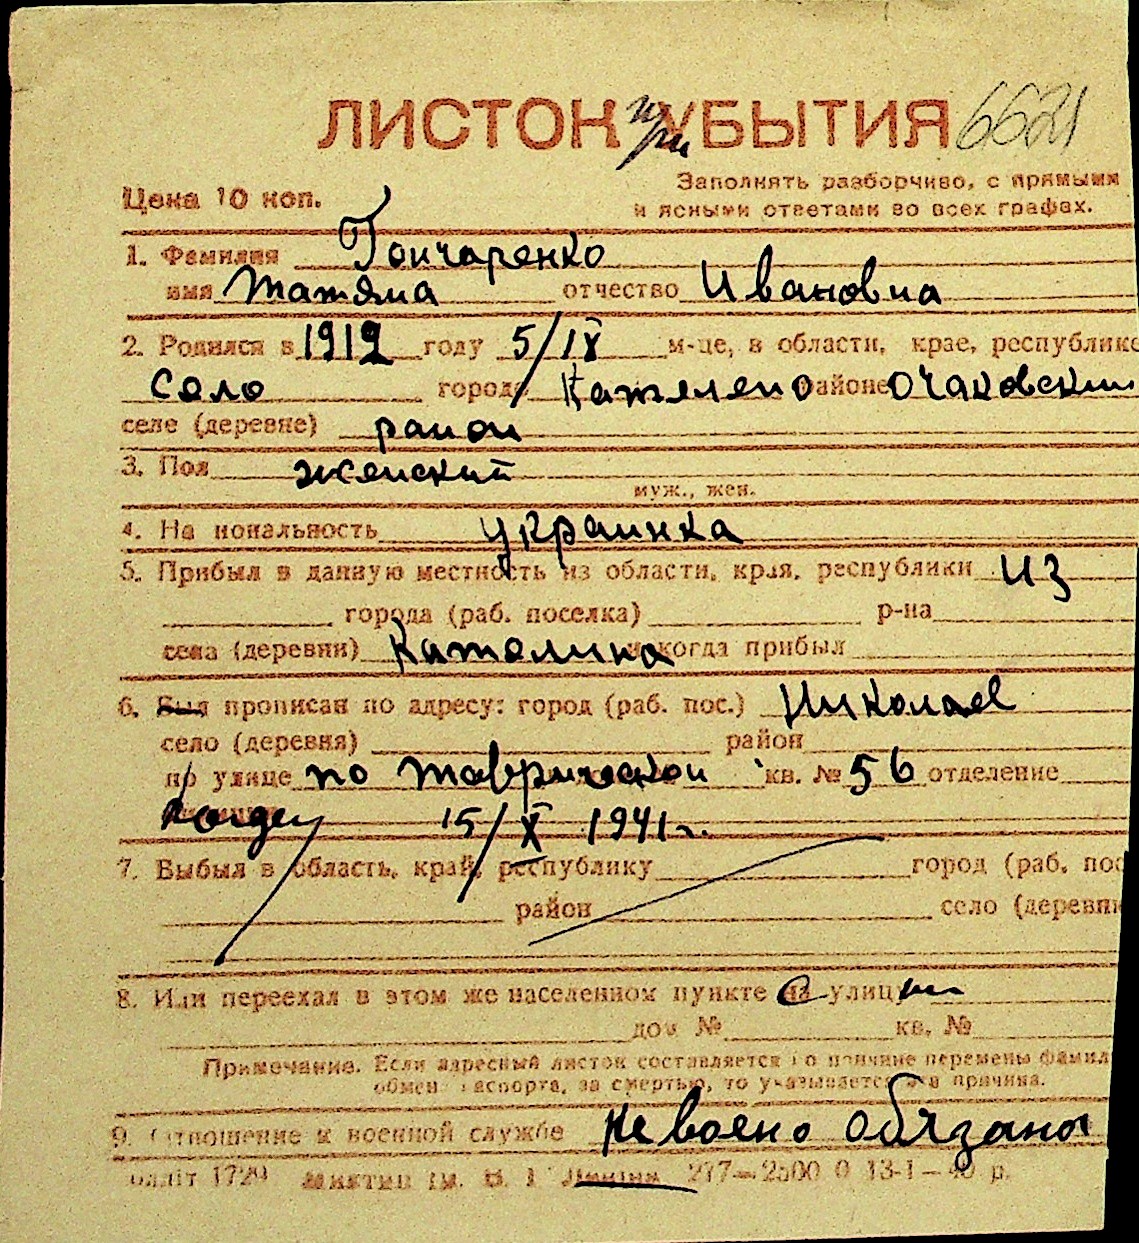 ЛИСТОК при УБЫТИЯ 6621
Цена 10 коп.
Заполнять разборчиво, с прямыми
и ясными ответами во всех графах.
1. Фамилия Гончаренко
имя Татяна отчество Ивановна
2. Родился в 1912 году 5/IX м-це, в области, крае, республике
село города Кателено районе Очаковский
селе (деревне) район
3. Пол женский
муж., жен.
4. На иональность украинка
5. Прибыл в данную местность из области, края, республики из
города (раб. поселка) р-на
села (деревни) Кателина и когда прибыл
6. Был прописан по адресу: город (раб. пос.) Николаев
село (деревня) район
по улице по Таврической кв. № 56 отделение
15/X 1941 г.
7. Выбыл в область, край, республику город (раб. пос
район село (деревня
8. Или переехал в этом же населенном пункте на улицу
дом № кв. №
Примечание. Если адресный листок составляется по причине перемены фамил
обмен паспорта, за смертью, то указывается эта причина.
9. Отношение к военной службе не воено обязана
1729 ім. В. І Леніна 277—2500 0 13-1—40 р.